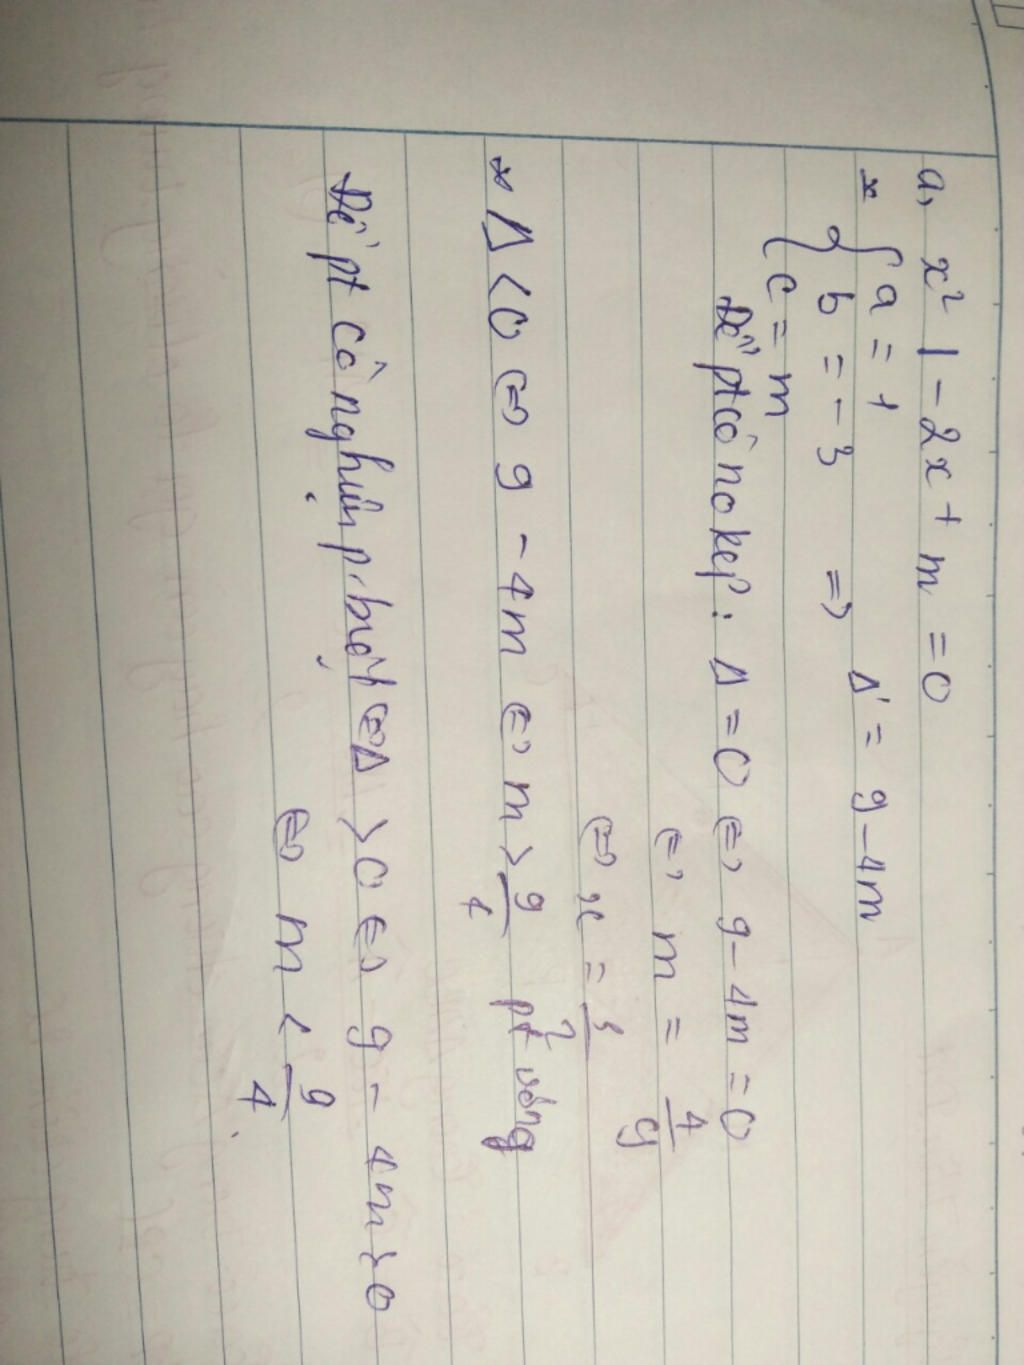 a, x² 1 - 2x + m = 0
* { a = 1
b = -3 => Δ' = 9 - 4m
c = m
Để pt có no kép : Δ = 0 <=> 9 - 4m = 0
<=> m = 4/9
<=> x = 3/2
* Δ < 0 <=> 9 - 4m <=> m > 9/4 pt vô ng
Để pt có nghiệm p.biệt <=> Δ > 0 <=> 9 - 4m > 0
<=> m < 9/4.